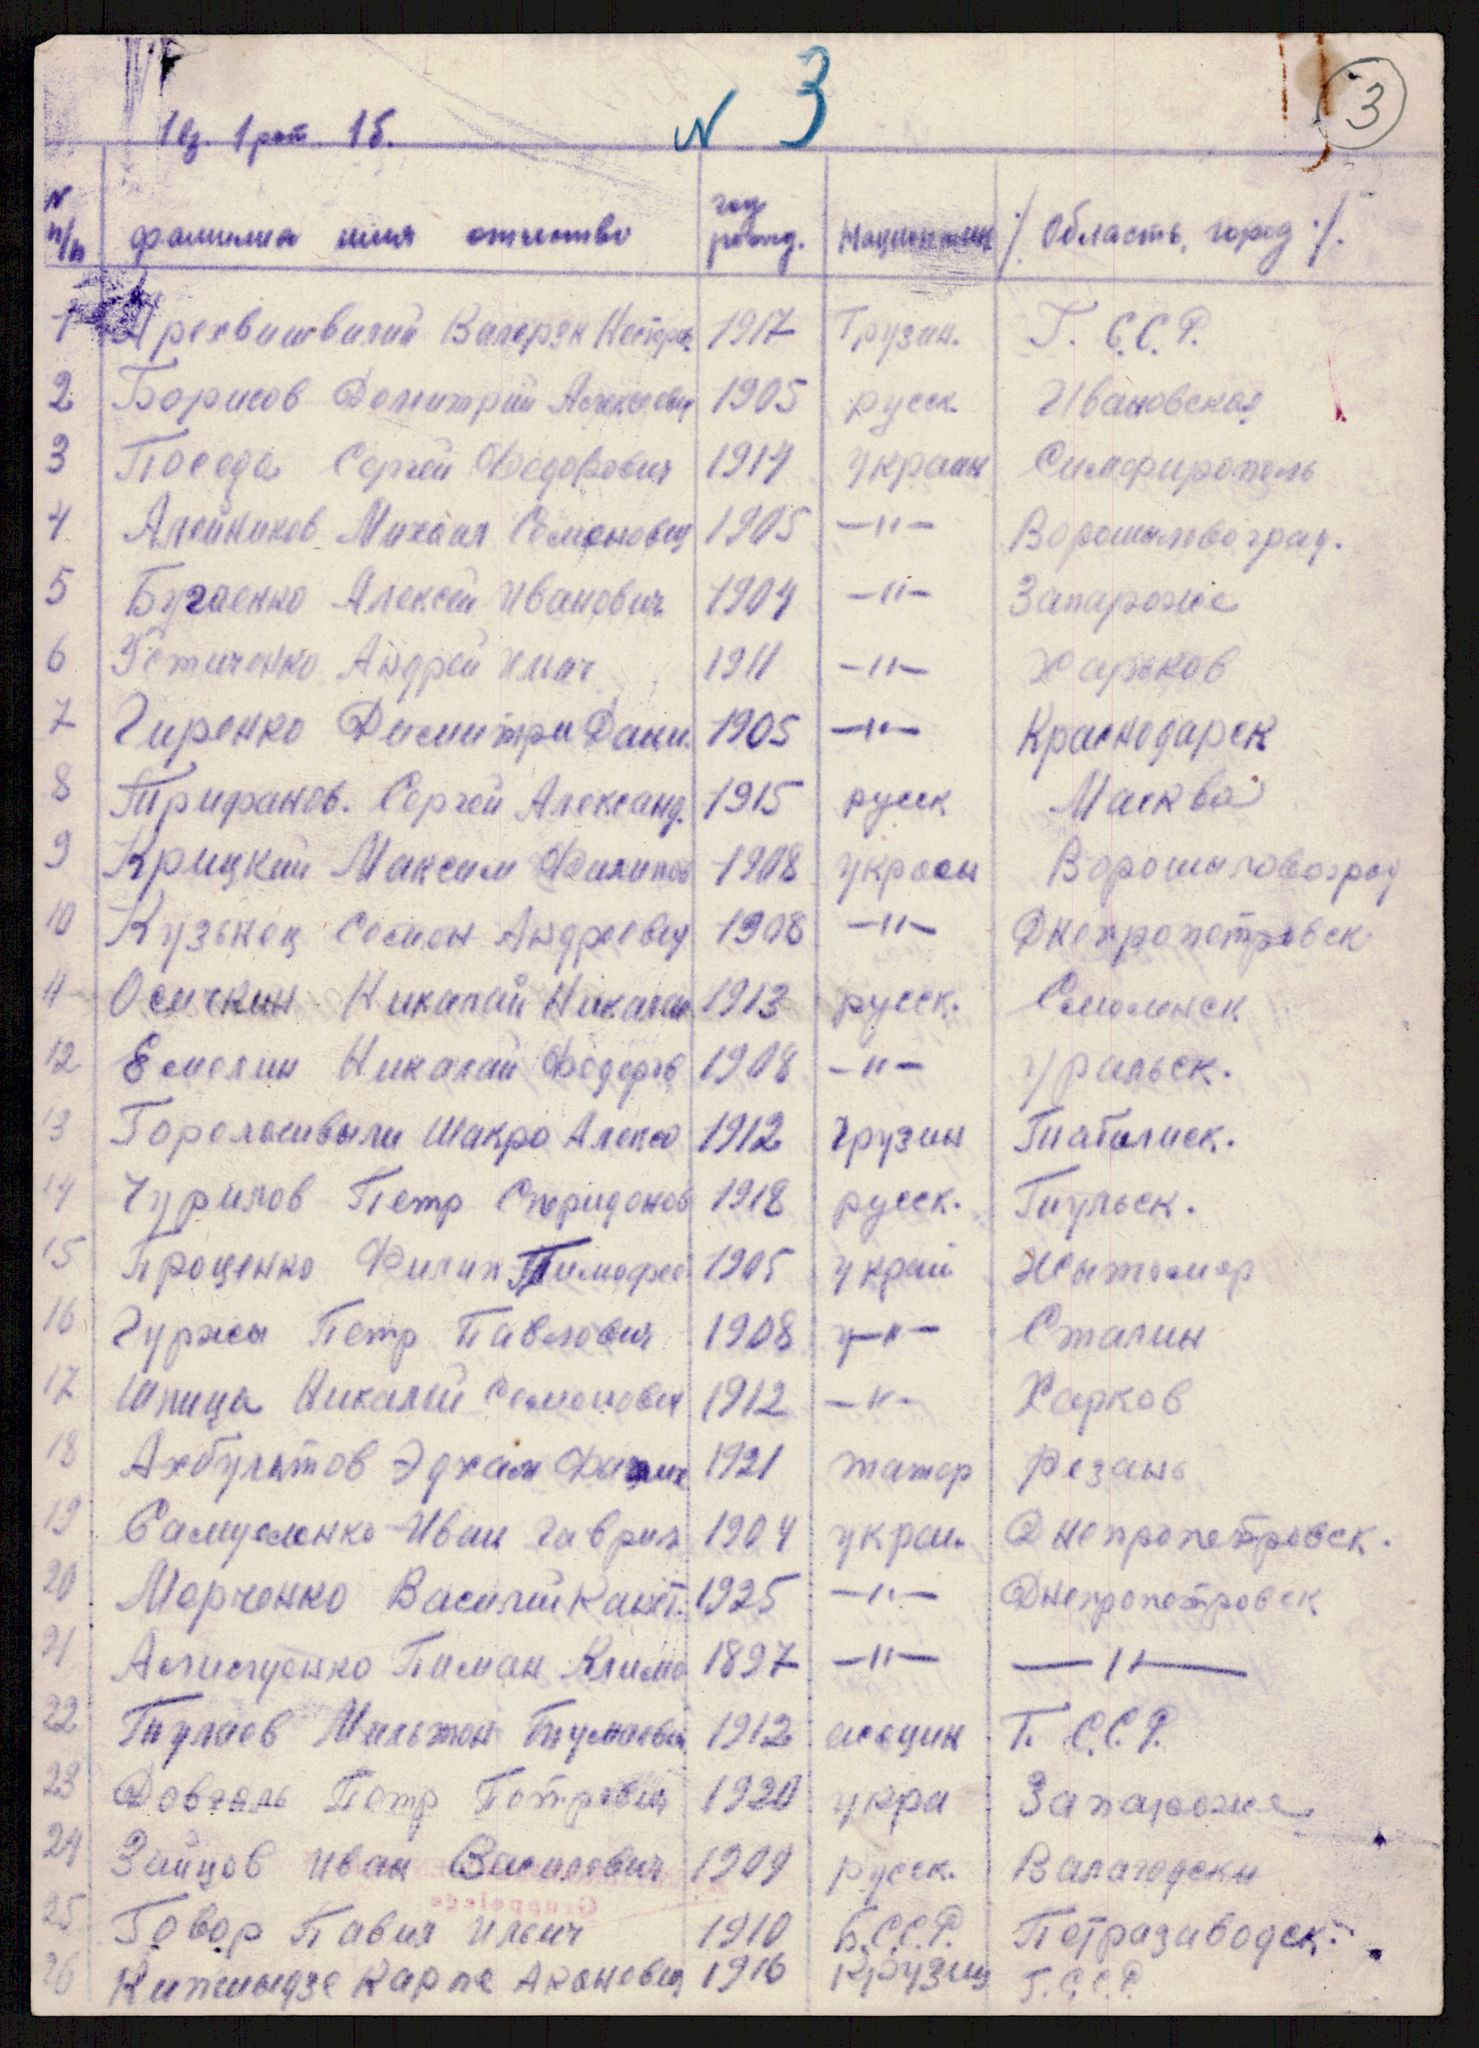 1 вз. 1 рот. 1б.
N 3
3
N п/п фамилия имя отчество год рожд. Национтин /. Область, город ./.
1 Арехвишвилий Валерян Нестеров 1917 Грузин. Г. С.С.Р.
2 Борисов Дмитрий Алексеевич 1905 русск. Ивановская
3 Поседа Сергей Федорович 1914 украин Симфирополь
4 Алейников Михаил Семенович 1905 —"— Ворошиловоград.
5 Бугаенко Алексей Иванович 1904 —"— Запароже
6 Устиченко Андрей Ильич 1911 —"— Харьков
7 Гиренко Димитри Дани. 1905 —"— Краснодарск
8 Трифанов. Сергей Александ. 1915 русск Масква
9 Крицкий Максим Филипов 1908 украен Ворошиловоград
10 Кузьнец Семен Андреевич 1908 —"— Днепропетровск
11 Осичкин Никалай Никалаи 1913 русск. Смоленск
12 Емелин Никалай Федоров 1908 —"— Уральск.
13 Горелышвыли Шакро Алексо 1912 Грузин Тибилиск.
14 Чурилов Петр Спиридонов 1918 русск. Тульск.
15 Проценко Филип Тимофее 1905 украй Жытомор
16 Гуржы Петр Павлович 1908 у—"— Сталин
17 Шпица Никалай Семенович 1912 —"— Харков
18 Ахбулатов Эдхам 1921 татор Резань
19 Самусленко Иван Гаврил 1904 украи. Днепропетровск.
20 Морченко Василий Канст. 1925 —"— Днепропетровск
21 Пиман Климо 1897 —"— —"—
22 Тулаев Мильтон 1912 асецин Г. С.С.Р.
23 Довгаль Петр Петрович 1920 укра Запароже
24 Зайцов Иван Василович 1909 русск. Валагодски
25 Говор Павил Ильич 1910 Б.С.С.Р. Петразаводск.
26 Кипшыдзе Карпе 1916 Г.С.С.Р.